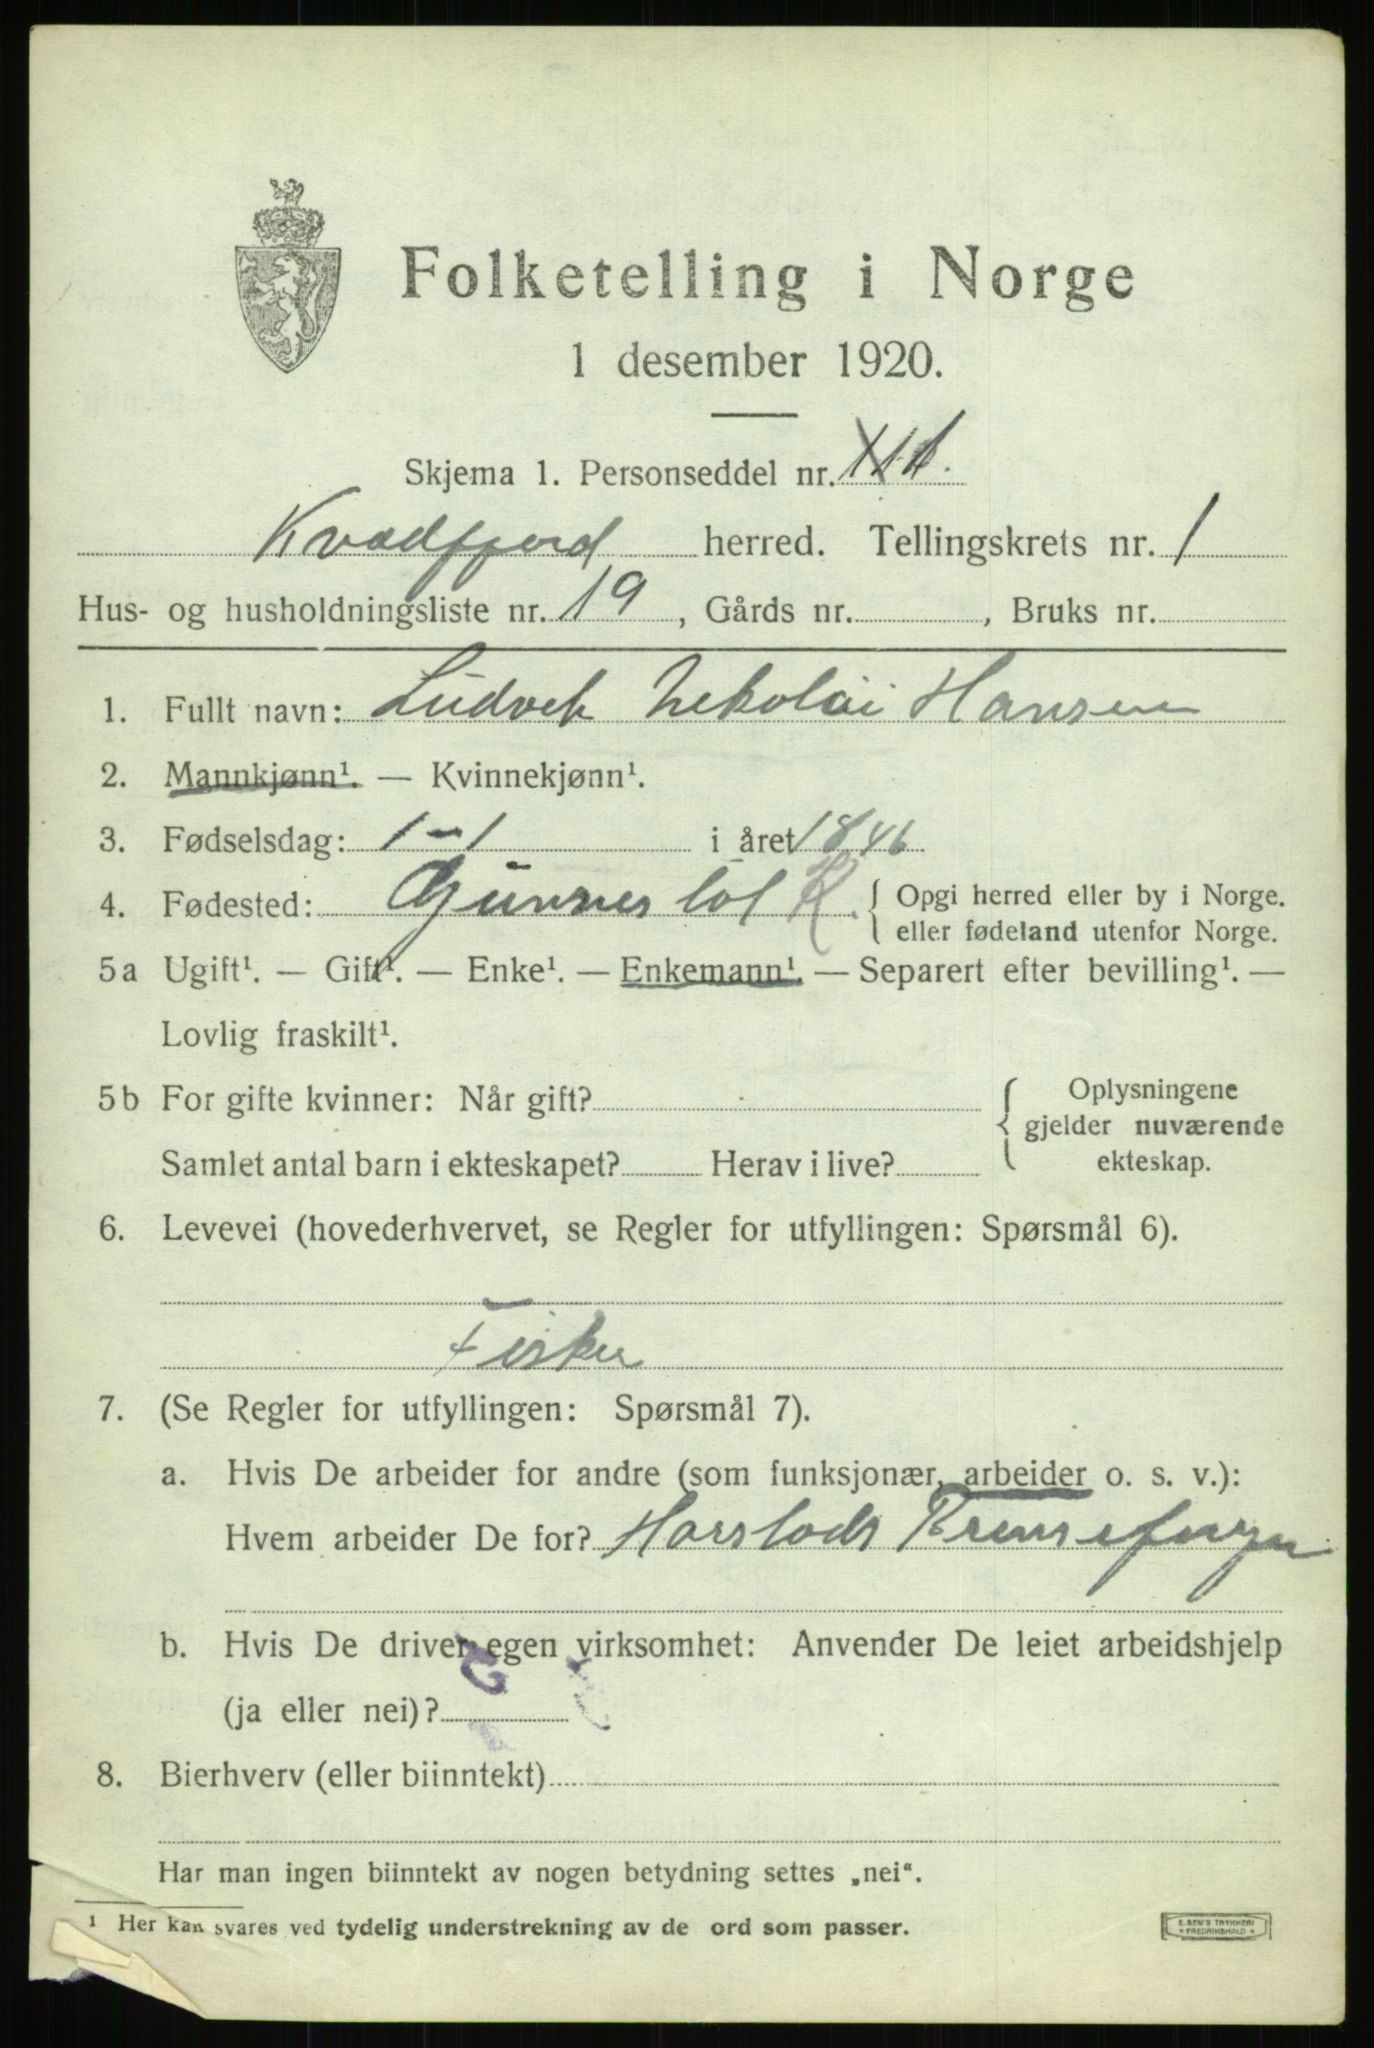 Folketelling i Norge
1 desember 1920.
Skjema 1. Personseddel nr.
Kvædfjord herred. Tellingskrets nr. 1
Hus- og husholdningsliste nr. 19, Gårds nr. , Bruks nr.
1. Fullt navn: Ludvek Nekolai Hansen
2. Mannkjønn¹. — Kvinnekjønn¹.
3. Fødselsdag: 1-1 i året 1846
4. Fødested: K. { Opgi herred eller by i Norge.
eller fødeland utenfor Norge.
5a Ugift¹. — Gift¹. — Enke¹. — Enkemann¹. — Separert efter bevilling¹. —
Lovlig fraskilt¹.
5b For gifte kvinner: Når gift? { Oplysningene
gjelder nuværende
Samlet antal barn i ekteskapet? Herav i live? ekteskap.
6. Levevei (hovederhvervet, se Regler for utfyllingen: Spørsmål 6).
Fisker
7. (Se Regler for utfyllingen: Spørsmål 7).
a. Hvis De arbeider for andre (som funksjonær, arbeider o. s. v.):
Hvem arbeider De for? Harstads
b. Hvis De driver egen virksomhet: Anvender De leiet arbeidshjelp
(ja eller nei)?
8. Bierhverv (eller biinntekt)
Har man ingen biinntekt av nogen betydning settes „nei“.
¹ Her kan svares ved tydelig understrekning av de ord som passer.
E. SEM'S TRYKKERI
FREDRIKSHALD